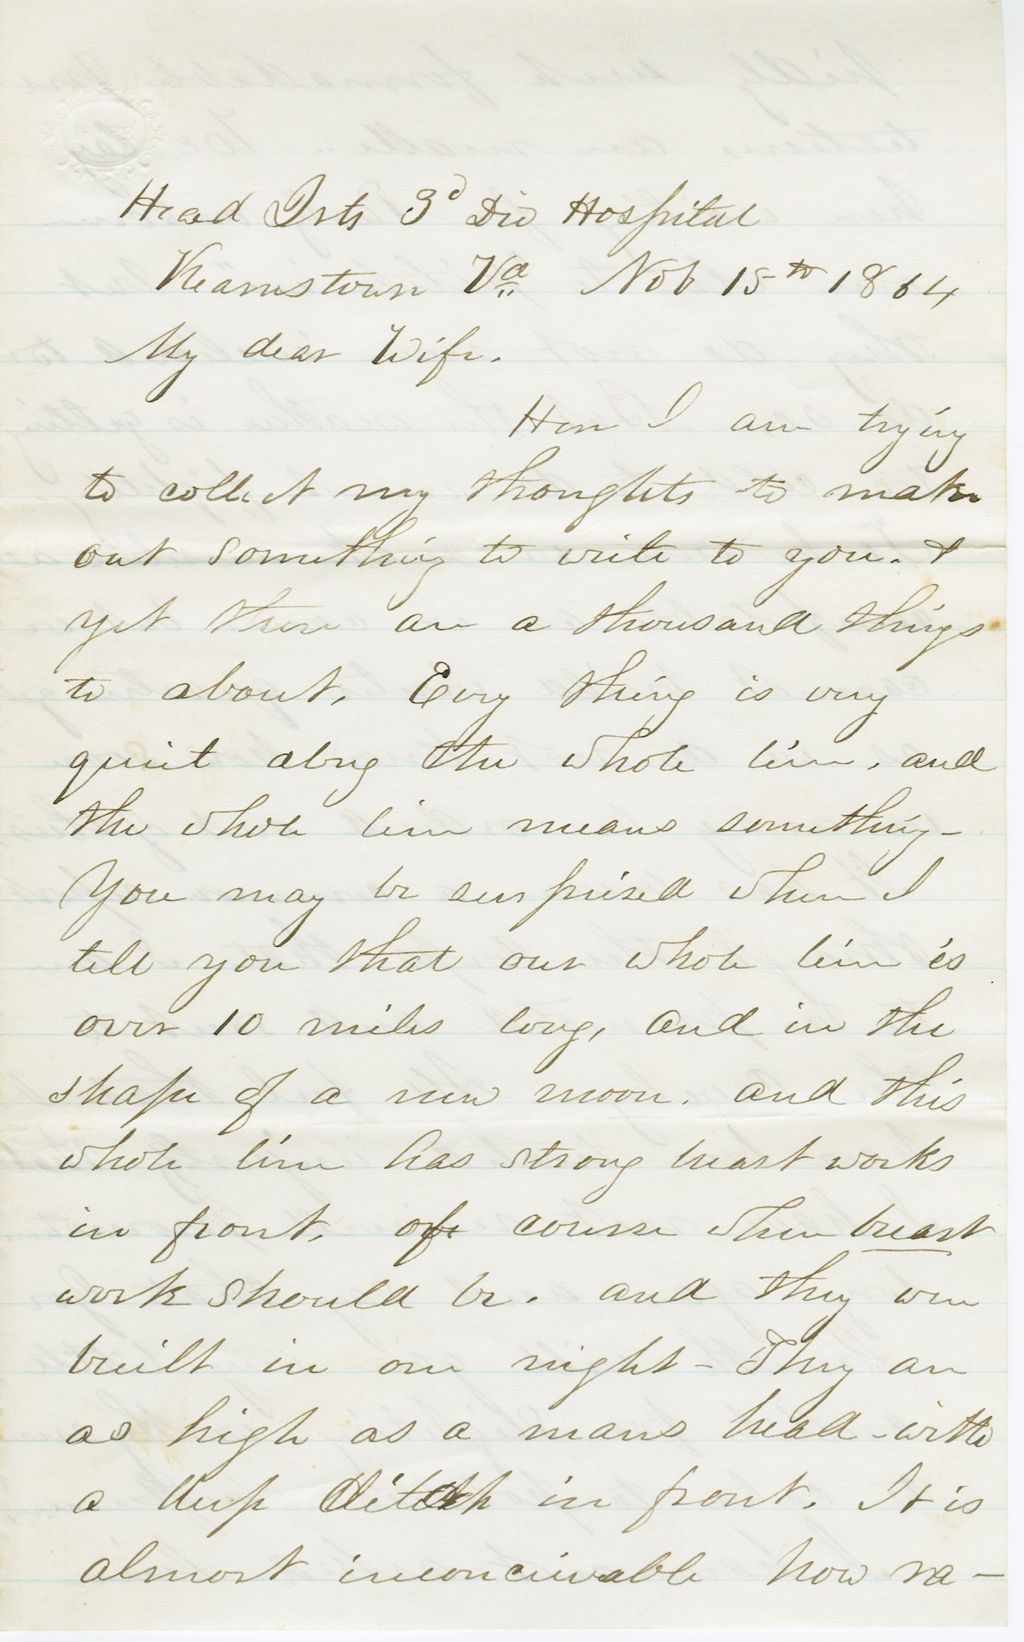 Head Qrts 3d Div Hospital
Kearnstown Va Nov 15th 1864
My dear Wife.
Here I am trying
to collect my thoughts to make
out something to write to you. &
yet there are a thousand things
to about. Every thing is very
quiet along the whole line, and
the whole line means something-
You may be surprised when I
tell you that our whole line is
over 10 miles long, and in the
shape of a new moon. and this
whole line has strong breast works
in front, of course where breast
work should be. and they were
built in one night - They are
as high as a mans head - with
a deep ditch in front. It is
almost inconcievable how ra-